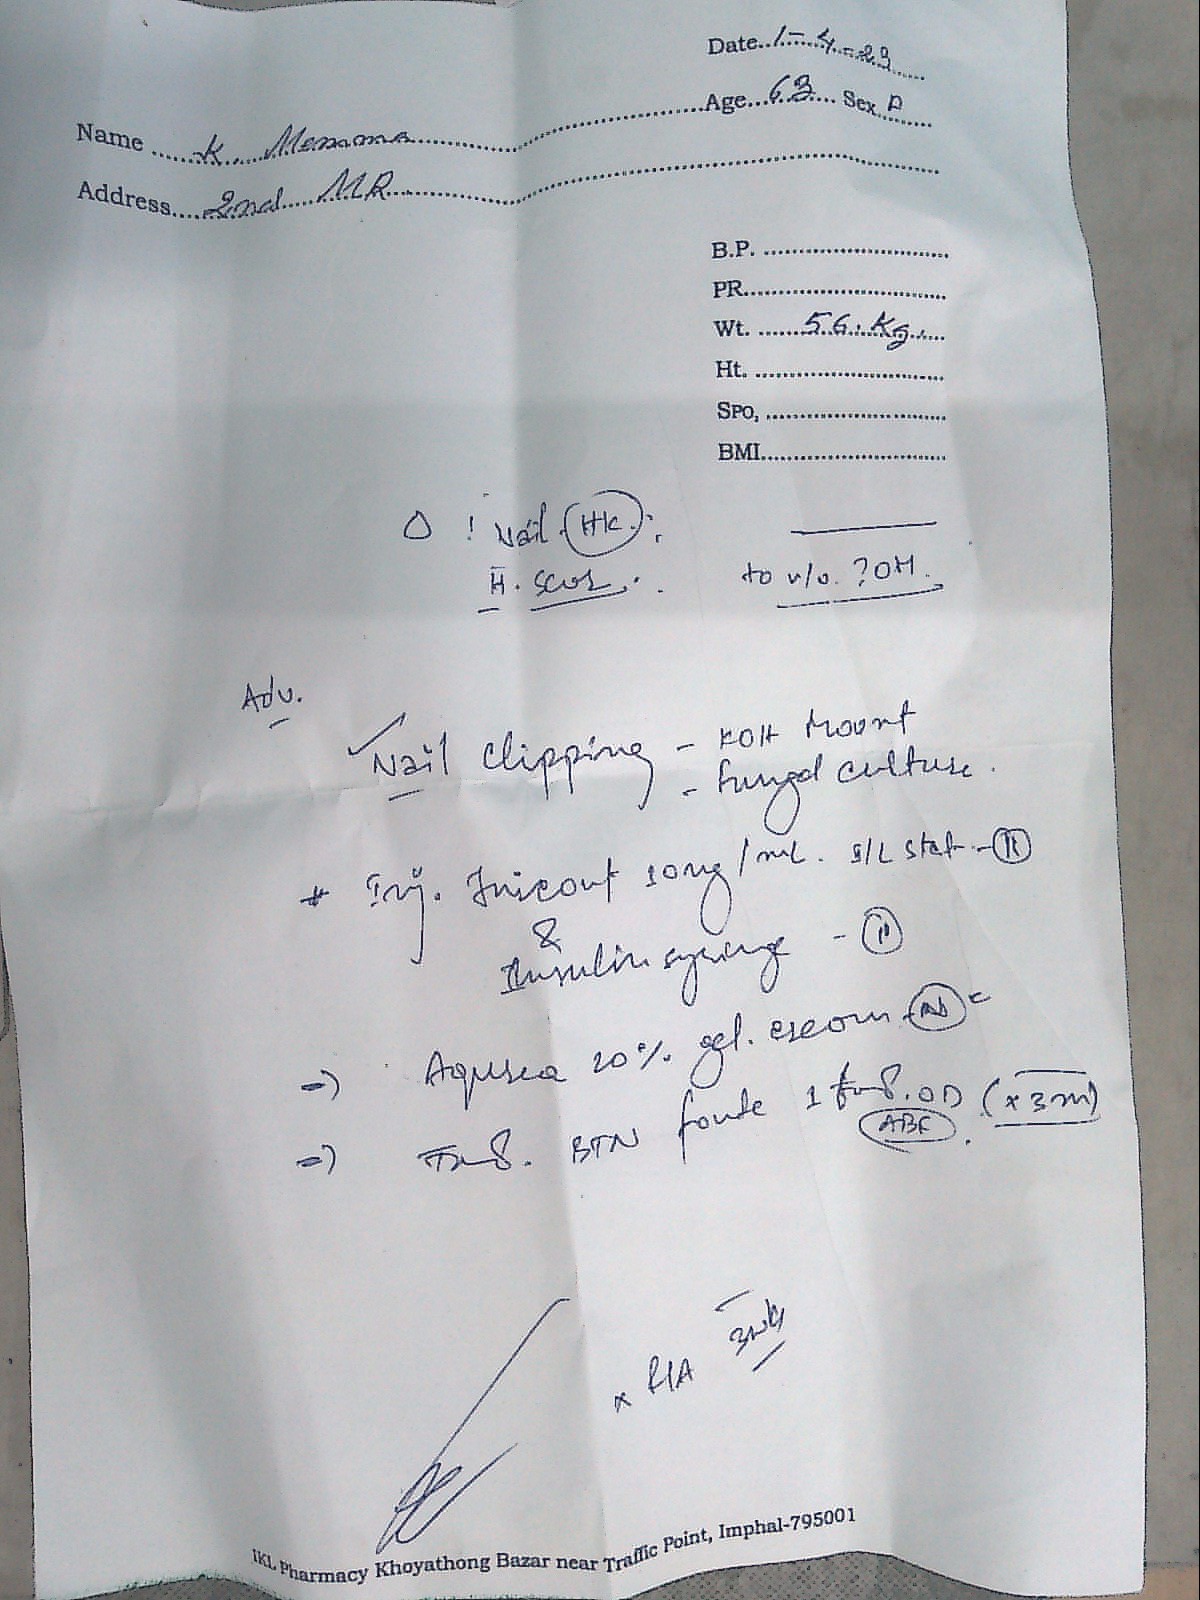 Date..1-4-23
Age...63.... Sex. F
Name ......K. Memma
Address....2nd MR
B.P.
PR.
Wt. ......56.Kg.
Ht.
SPO,
BMI.
Nail
H. Scar
to r/o. ?OM.
Adv.
Nail Clipping - KOH Mount
- Fungal culture.
* Inj. Tricort 10mg/ml. I/L stat - II
&
Insulin syringe - II
=) Aqurea 20% gel. cream
=) Tab. BTN forte 1 tab. OD (x 3m)
ABF
x R/A 3wk
IKL Pharmacy Khoyathong Bazar near Traffic Point, Imphal-795001